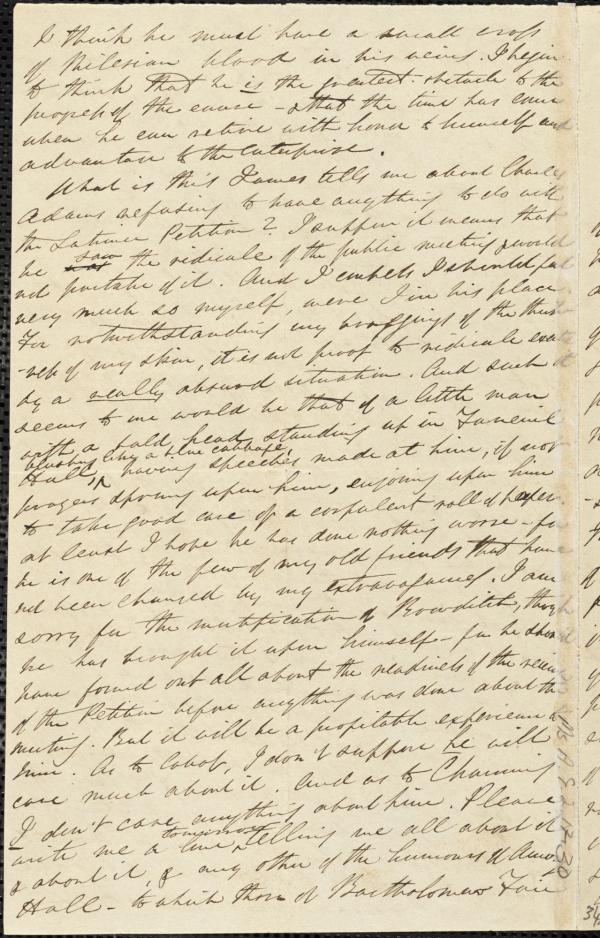 I think he must have a small cross
of Milesian blood in his veins. I begin
to think that he is the greatest obstacle to the
progress of the cause - & that the time has come
when he can retire with honor to himself and
advantage to the enterprise.
What is this James tells me about Charles
Adams refusing to have anything to do with
the Latimer Petition? I suppose it means that
he saw the ridicule of the public meeting & would
not partake of it. And I confess I should feel
very much so myself, were I in his place.
For notwithstanding my braggings of the thick-
-ness of my skin, it is not proof to ridicule
by a really absurd situation. And such it
seems to me would be that of a little man
with a bald head, standing up in Faneuil
blushing like a blue cabbage,
Hall, having speeches made at him, if not
prayers upon him, enjoining upon him
to take good care of a corpulent roll of paper.
at least I hope he has done nothing worse - for
he is one of the few of my old friends that have
not been changed by my extravagances. I am
sorry for the mortification of Bowditch, though
he has brought it upon himself - for he should
have found out all about the readiness of the
of the Petition before anything was done about the
meeting. But it will be a profitable experience to
him. As to Cabot, I don't suppose he will
care much about it. And as to Channing
I don't care anything about him. Please
write me a line telling me all about it
& about it, & any other of the humours of Amory
Hall - to which those of Bartholomew Fair